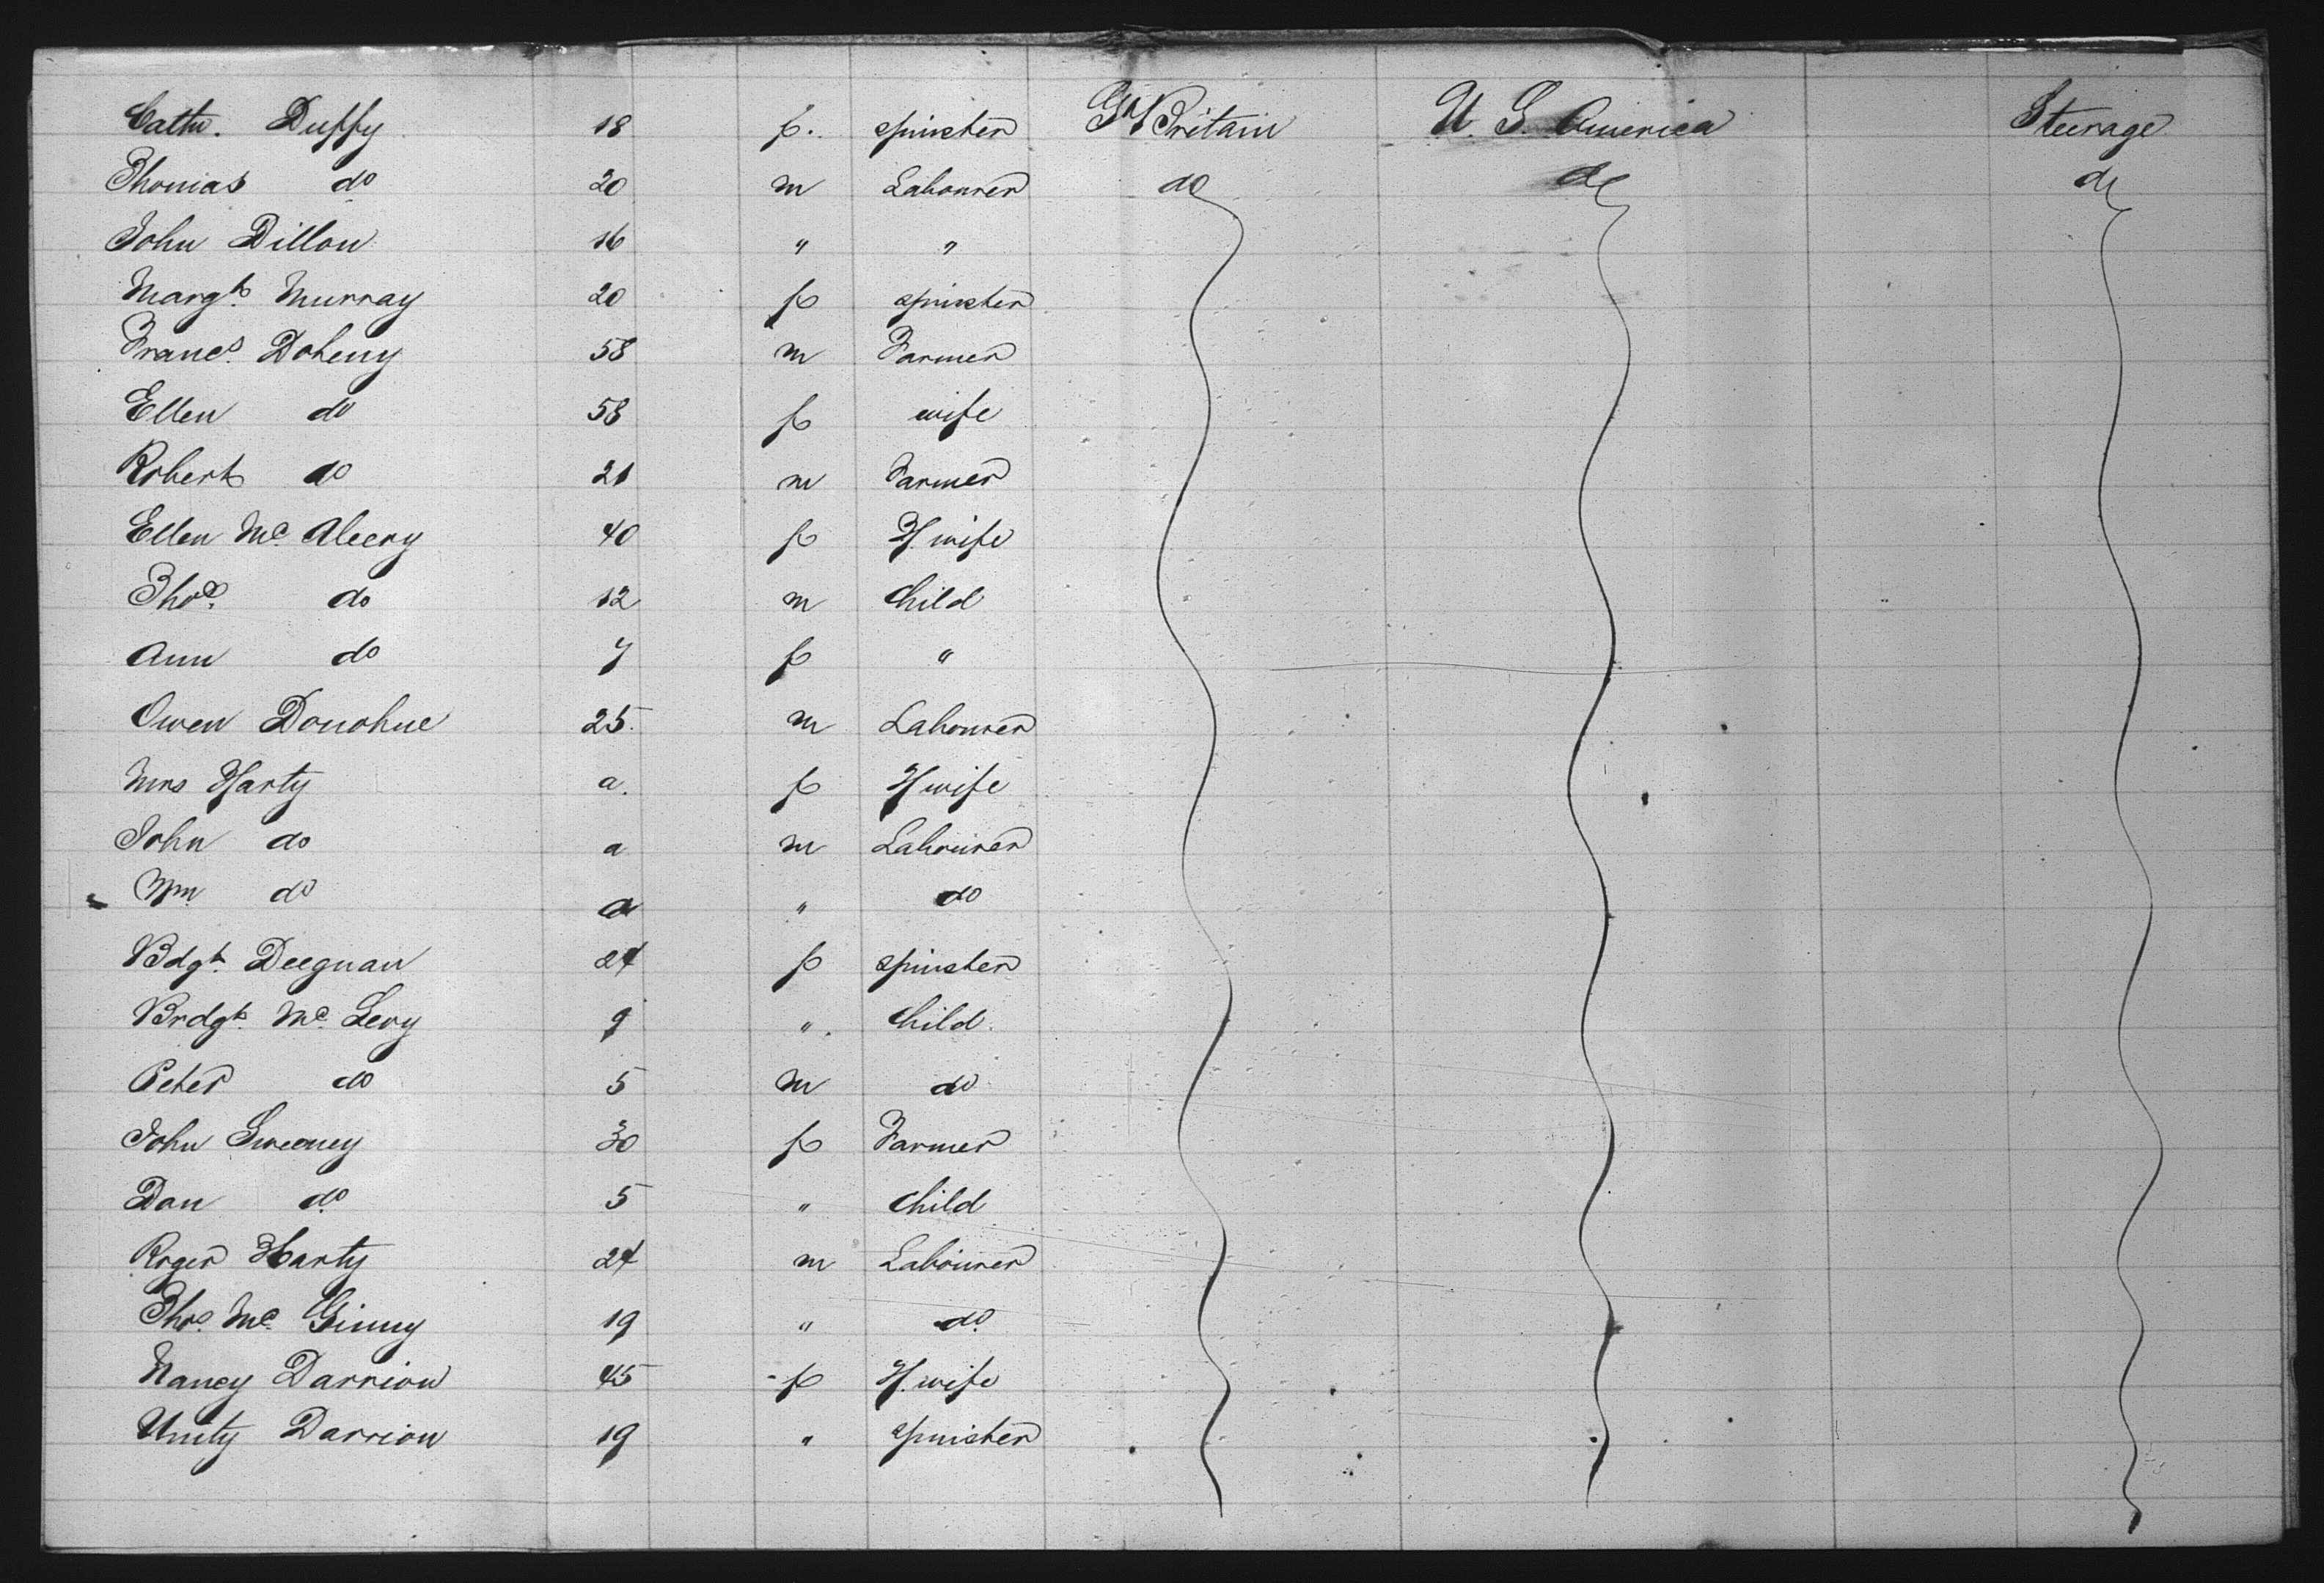 Cathn. Duffy 18 f. spinster Gt Britain U. S. America Steerage
Thomas do 20 m Labourer do do do
John Dillon 16 " "
Margt. Murray 20 f spinster
Francs. Doheny 58 m Farmer
Ellen do 58 f wife
Robert do 21 m Farmer
Ellen Mc Aleery 40 f H. wife
Thos. do 12 m Child
Ann do 7 f "
Owen Donohue 25. m Labourer
Mrs Harty a. f H wife
John do a m Labourer
Wm do a " do
Bdgt. Deegnan 24 f spinster
Brdgt. Mc Levy 9 " . Child.
Peter do 5 m do
John Sweeney 30 f Farmer
Dan do 5 " Child
Roger Harty 24 m Labourer
Thos. Mc Ginny 19 " do.
Nancy Darrion 45 f H. wife
Unity Darrion 19 " spinster